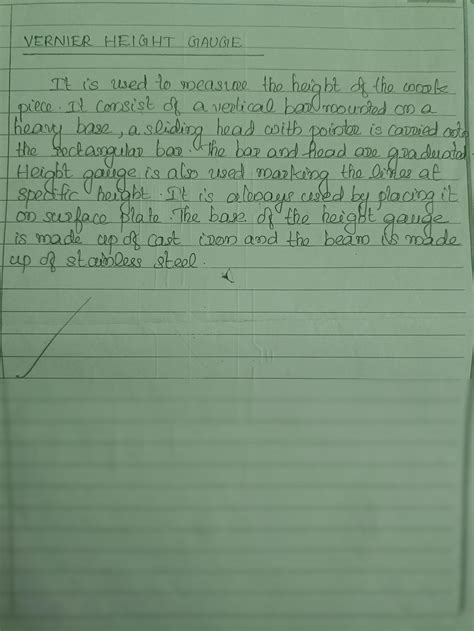 VERNIER HEIGHT GAUGE
It is used to measure the height of the work
piece. It consist of a vertical bar mounted on a
heavy base, a sliding head with pointer is carried onto
the rectangular bar. The bar and head are graduated.
Height gauge is also used marking the lines at
specific height. It is always used by placing it
on surface plate. The base of the height gauge
is made up of cast iron and the beam is made
up of stainless steel.